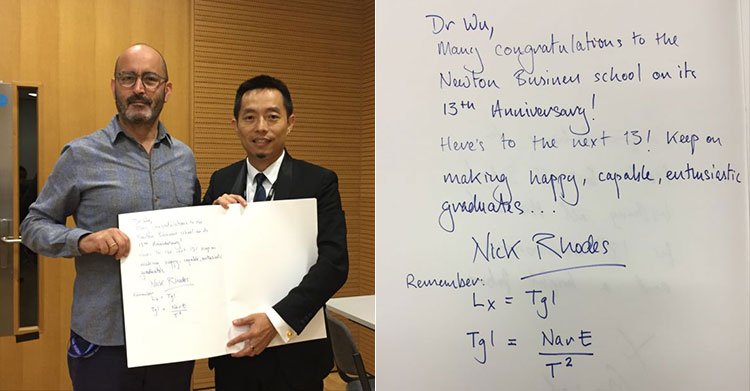 Dr Wu,
Many congratulations to the
Newton Business school on its
13th Anniversary!
Here's to the next 13! Keep on
making happy, capable, enthusiastic
graduates....
Nick Rhodes
Remember:
Lx = Tgl
Tgl = NavE
T²